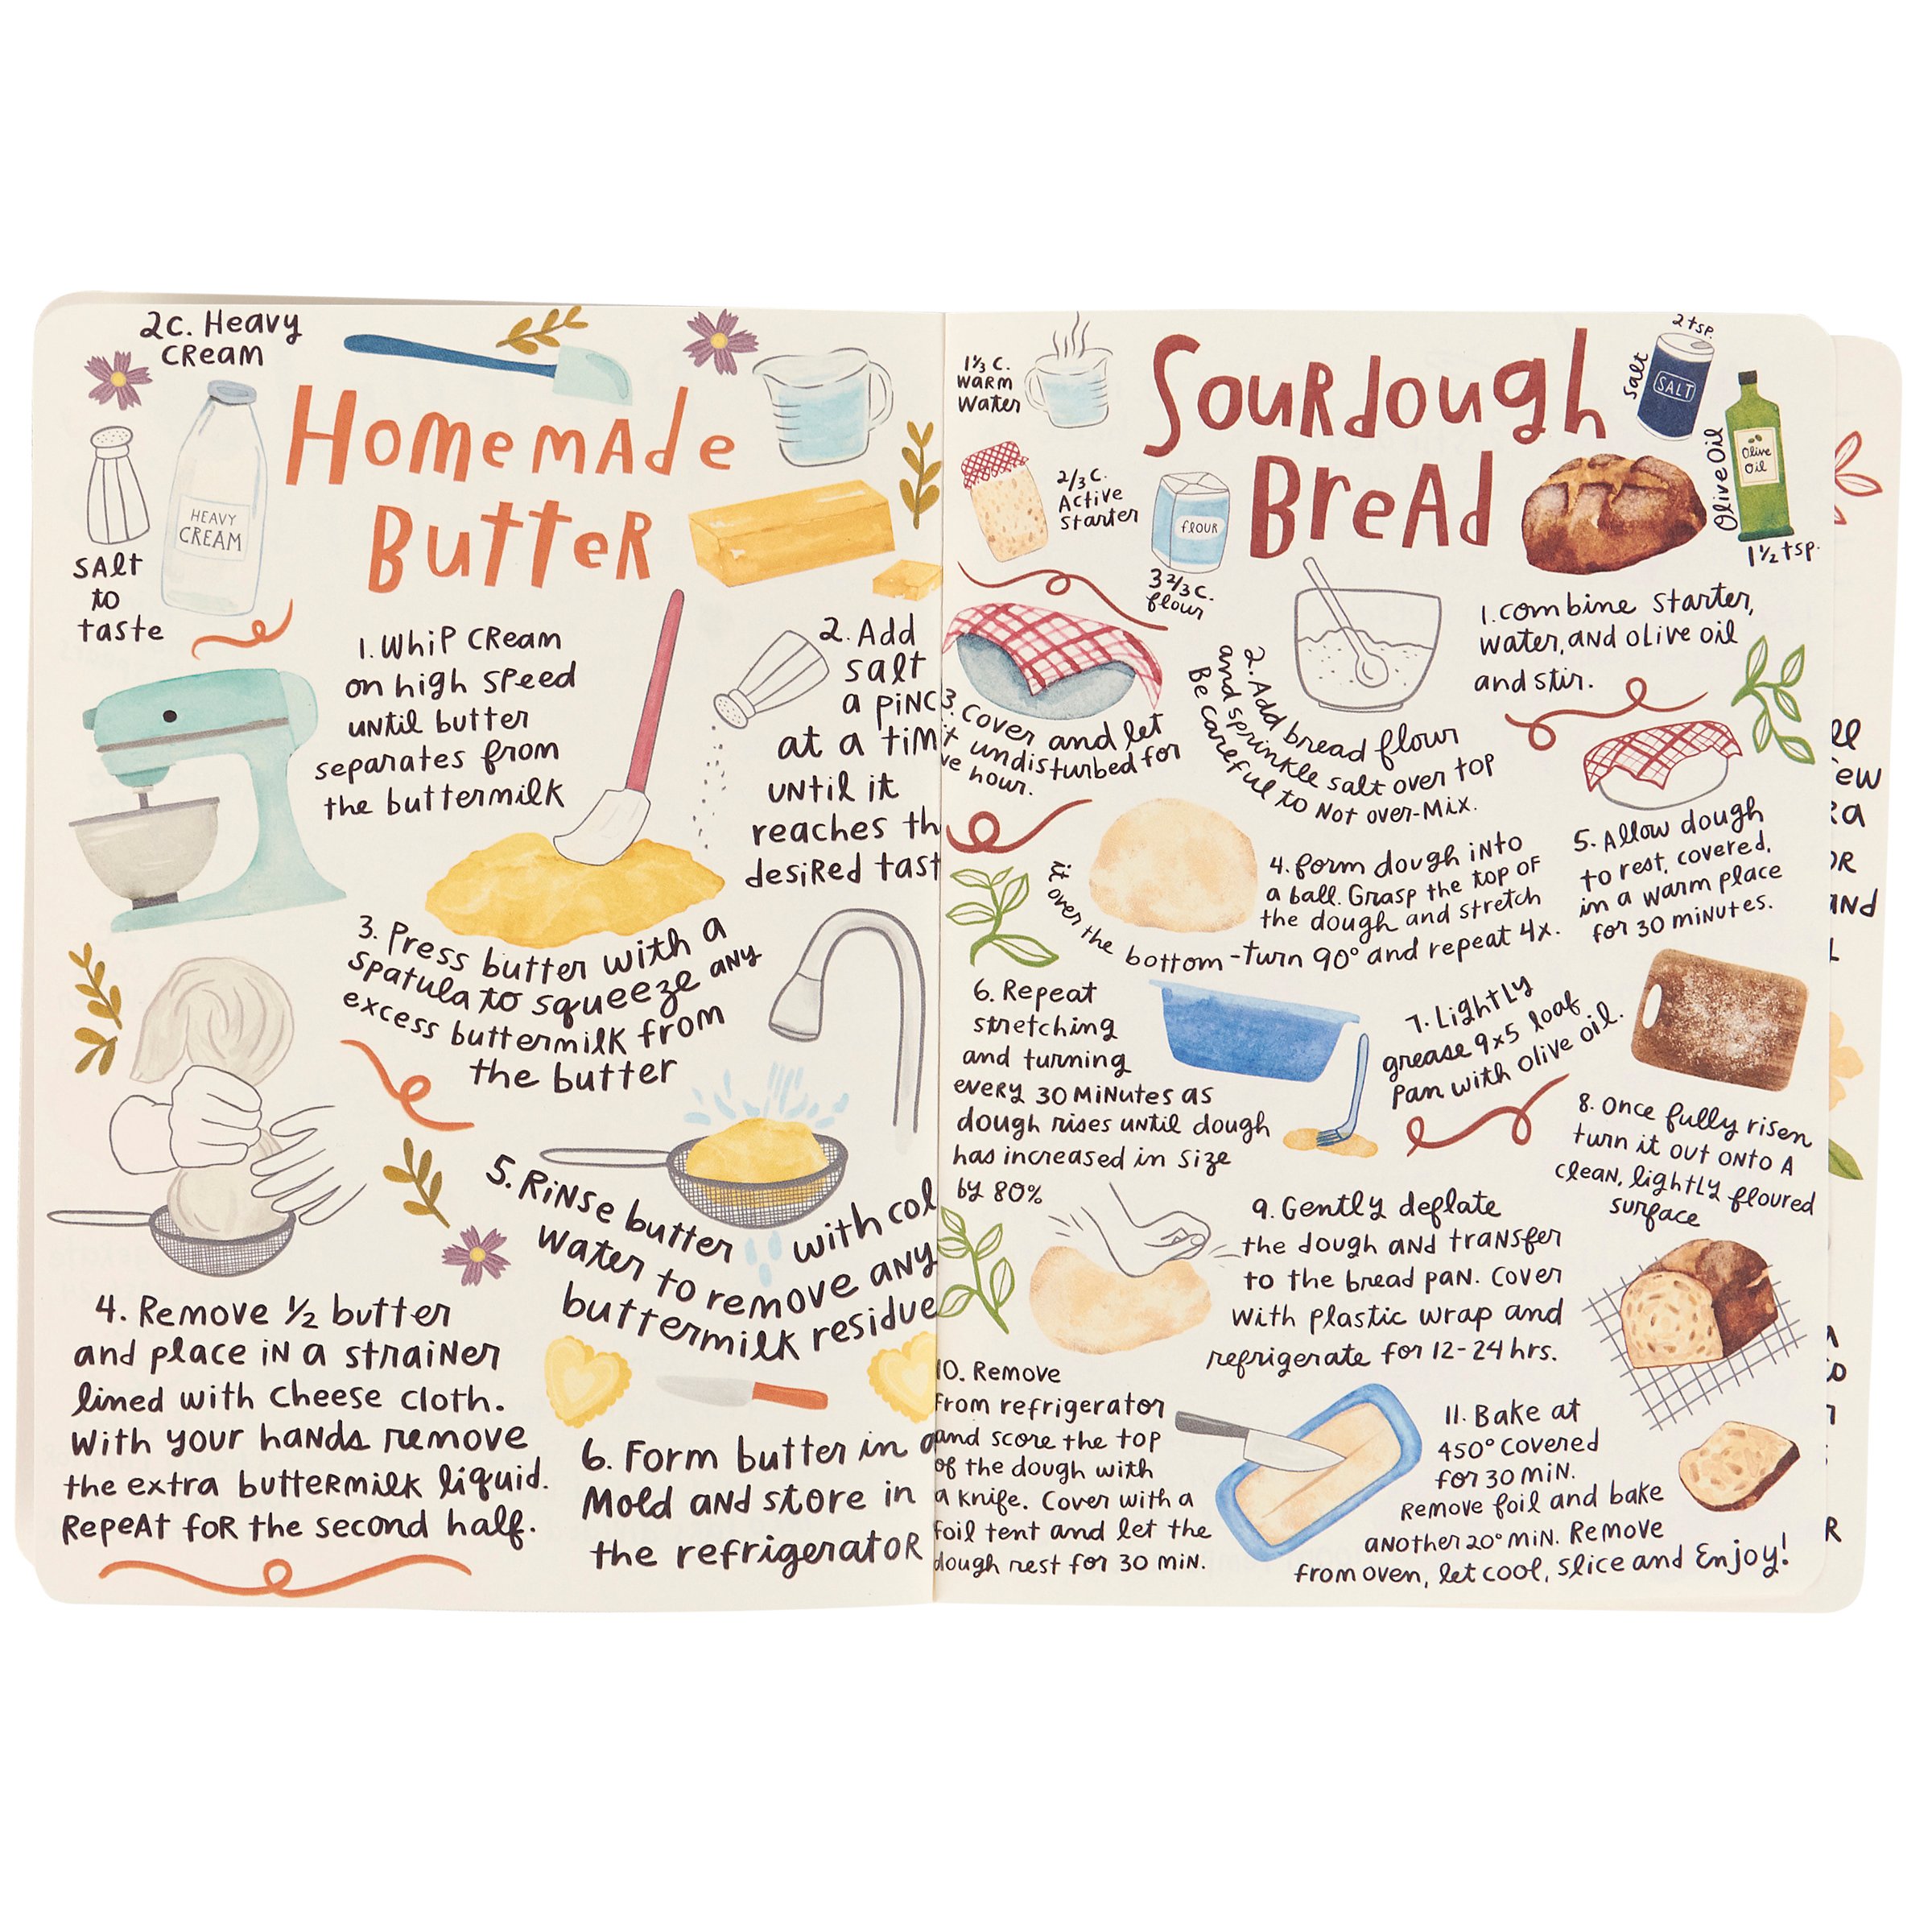 2c. Heavy
cream
Homemade
Butter
HEAVY
CREAM
Salt
to
taste
1. Whip cream
on high speed
until butter
separates from
the buttermilk
2. Add
salt
a pinc
at a tim
until it
reaches th
desired tast
3. Press butter with a
spatula to squeeze any
excess buttermilk from
the butter
4. Remove 1/2 butter
and place in a strainer
lined with cheese cloth.
With your hands remove
the extra buttermilk liquid.
Repeat for the second half.
5. Rinse butter with col
water to remove any
buttermilk residue
6. Form butter in a
mold and store in
the refrigerator
Sourdough
Bread
1 1/3 c.
warm
water
2/3 c.
Active
starter
flour
3 2/3 c.
flour
2 tsp.
salt
SALT
Olive Oil
Olive
Oil
1 1/2 tsp.
1. combine starter,
water, and olive oil
and stir.
2. Add bread flour
and sprinkle salt over top
Be careful to not over-mix.
3. Cover and let
it undisturbed for
ve hour.
4. form dough into
a ball. Grasp the top of
the dough and stretch
it over the bottom - turn 90° and repeat 4x.
5. Allow dough
to rest, covered,
in a warm place
for 30 minutes.
6. Repeat
stretching
and turning
every 30 minutes as
dough rises until dough
has increased in size
by 80%
7. Lightly
grease 9x5 loaf
pan with olive oil.
8. Once fully risen
turn it out onto a
clean, lightly floured
surface
9. Gently deflate
the dough and transfer
to the bread pan. Cover
with plastic wrap and
refrigerate for 12-24 hrs.
10. Remove
from refrigerator
and score the top
of the dough with
a knife. Cover with a
foil tent and let the
dough rest for 30 min.
11. Bake at
450° covered
for 30 min.
Remove foil and bake
another 20° min. Remove
from oven, let cool, slice and Enjoy!